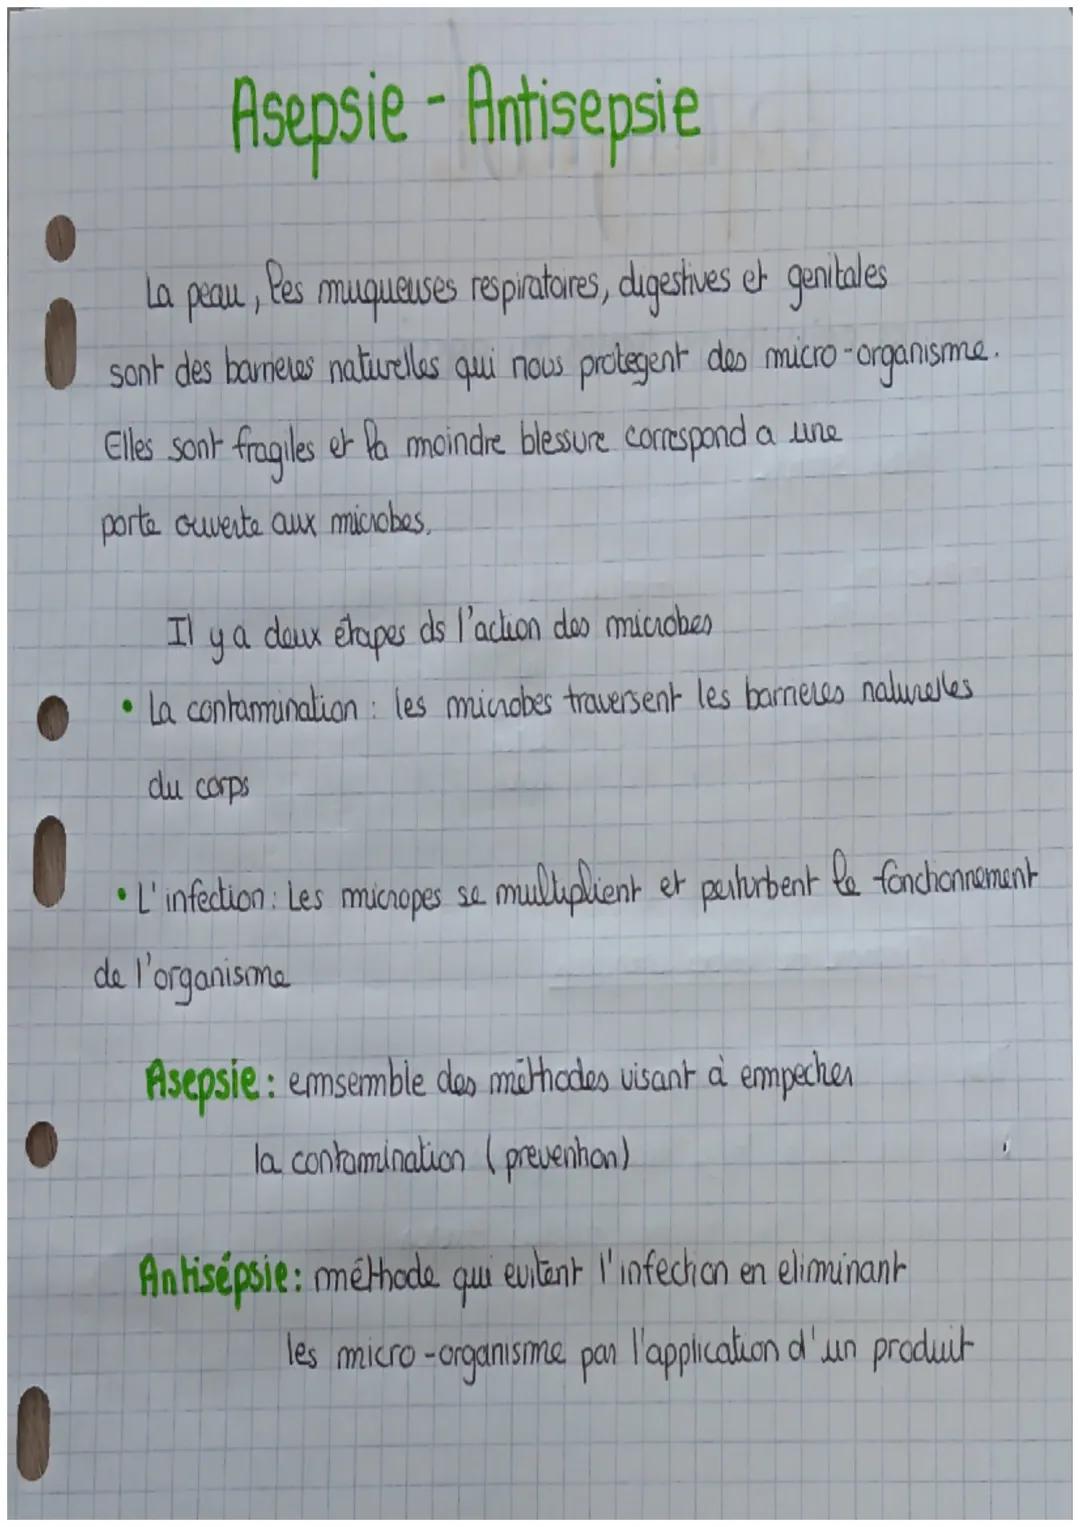 Asepsie - Antisepsie
La peau, les muqueuses respiratoires, digestives et genitales
sont des barrieres naturelles qui nous protegent des micro-organisme.
Elles sont fragiles et la moindre blessure correspond a une
porte ouverte aux microbes.
Il y a deux étapes ds l'action des microbes
• La contammination : les microbes traversent les barrieres naturelles
du corps
• L'infection : Les micropes se multiplient et perturbent le fonctionnement
de l'organisme
Asepsie : emsemble des méthodes visant à empecher
la contamination (prevention)
Antisépsie : méthode qui evitent l'infection en eliminant
les micro-organisme par l'application d'un produit